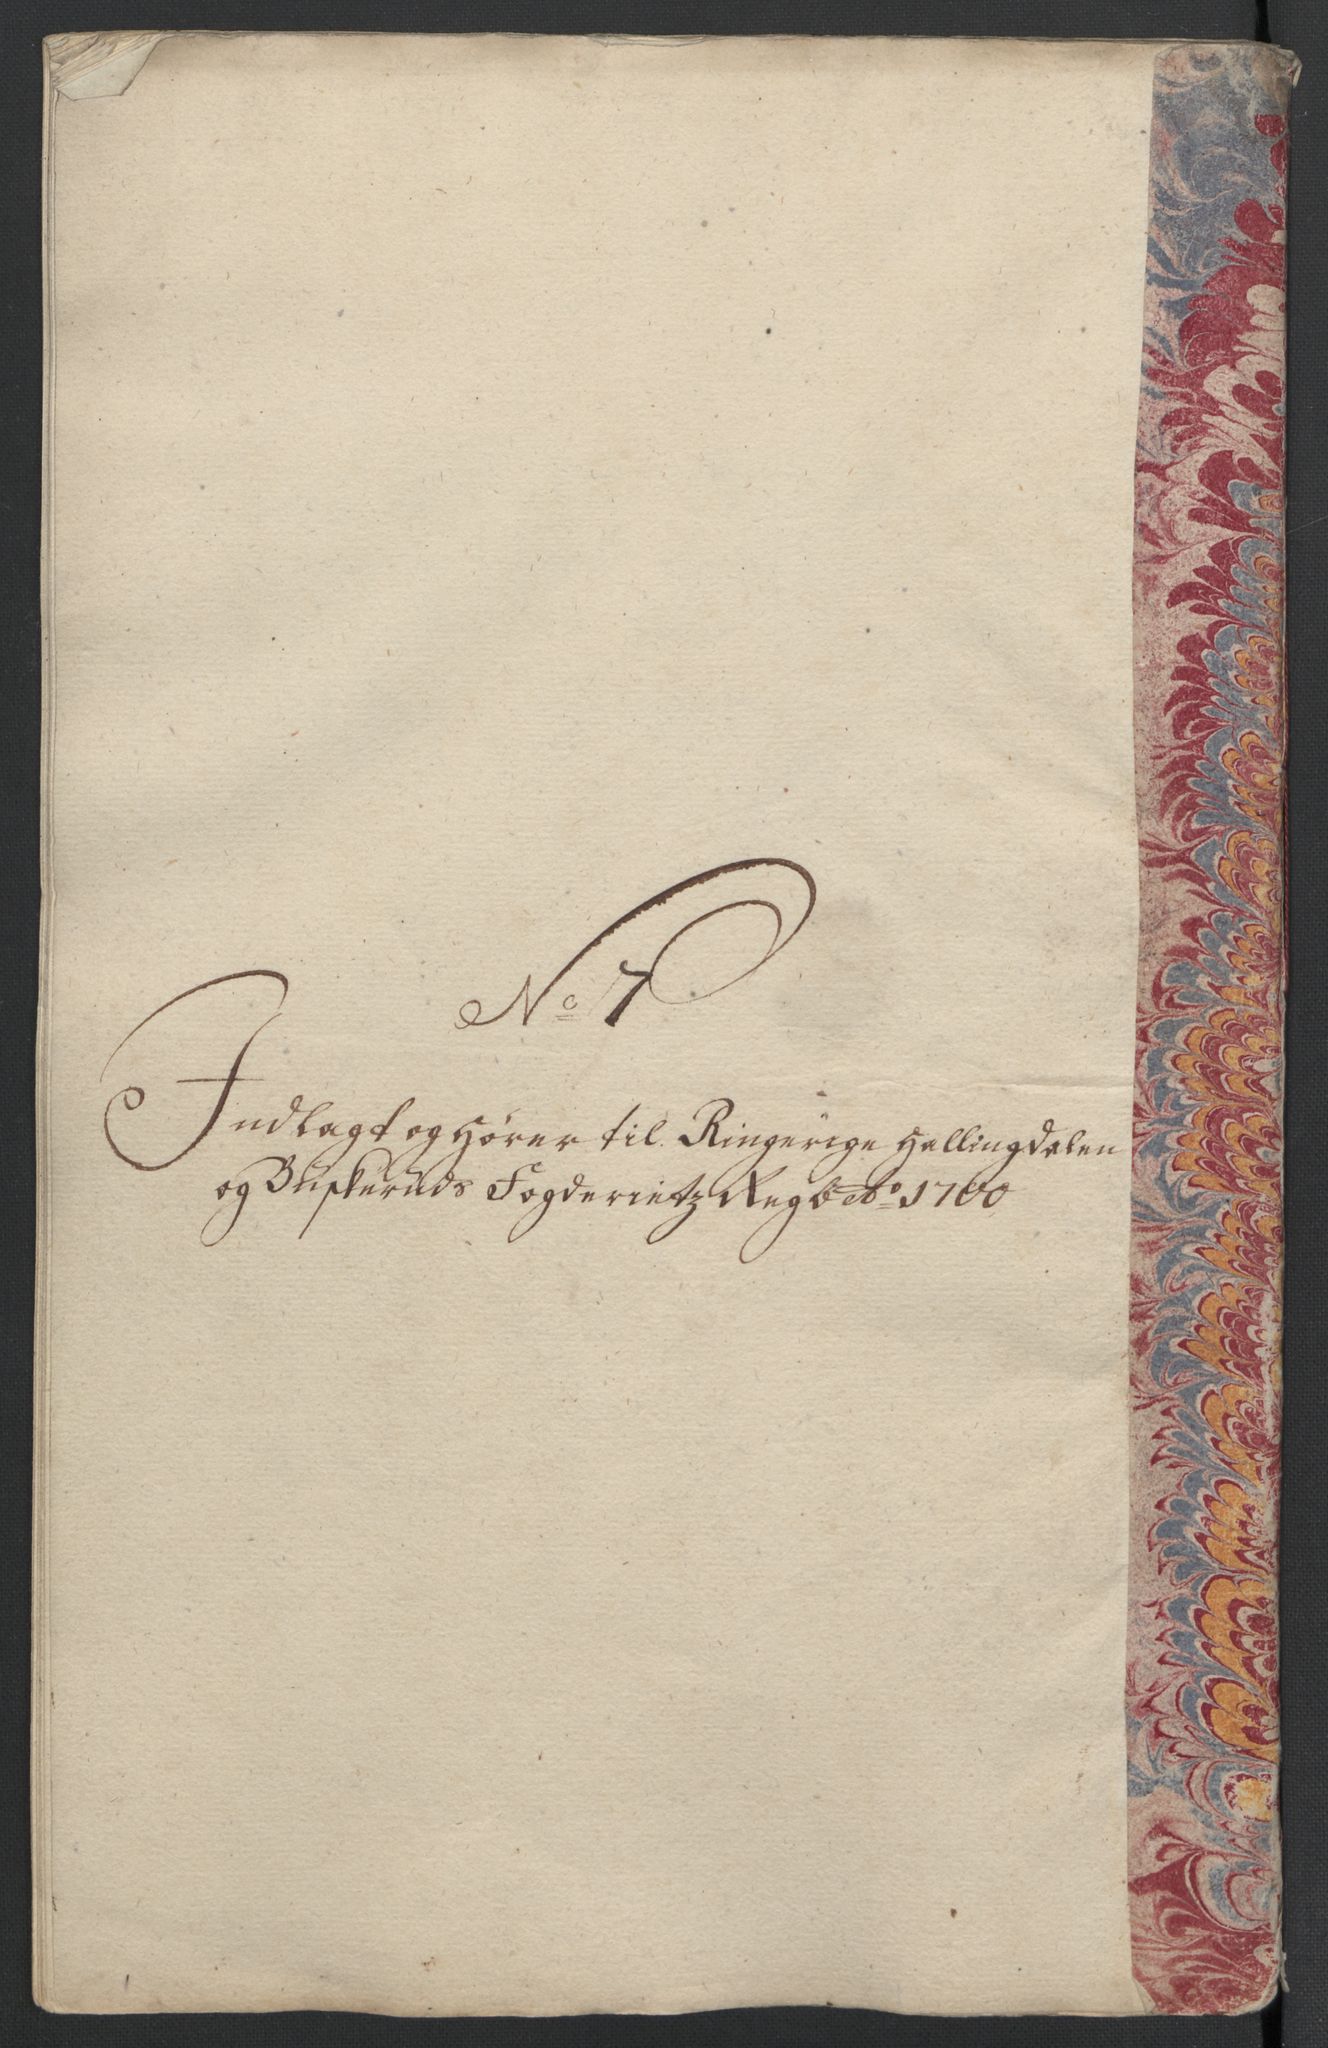 No 7
Indlagt og hører til Ringerige Hallingdalen
og Buskeruds Fogderietz Regb Ao 1700